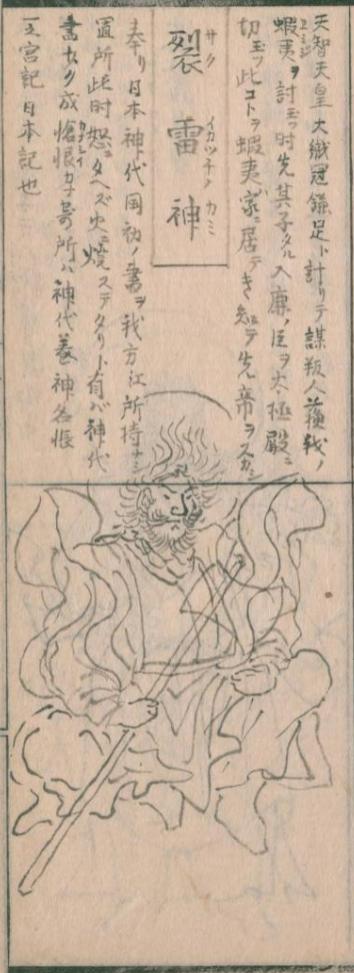 天智天皇大織冠鎌足ト計リテ謀叛人蘓我ノ
蝦夷ヲ討玉フ時先其子タル入鹿ノ臣ヲ大極殿ニ
切玉フ此コトヲ蝦夷家ニ居テき知テ先帝ヲ
裂雷神
サクイカツチノカミ
奉リ日本神代国初ノ書ヲ我方江所持
置所此时怒ニタヘズ火ニ焼ステタリト有バ神代
書セク成恨所ハ神代巻神名帳
王宮記日本記也